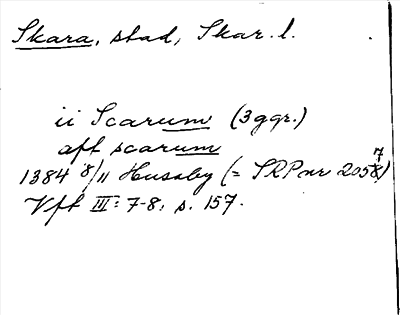 Skara, stad, Skar. l.
ii Scarum (3 ggr.)
aff scarum
1384 8/11 Husaby (= SRP nr 2057)
Vft III: 7-8, s. 157.